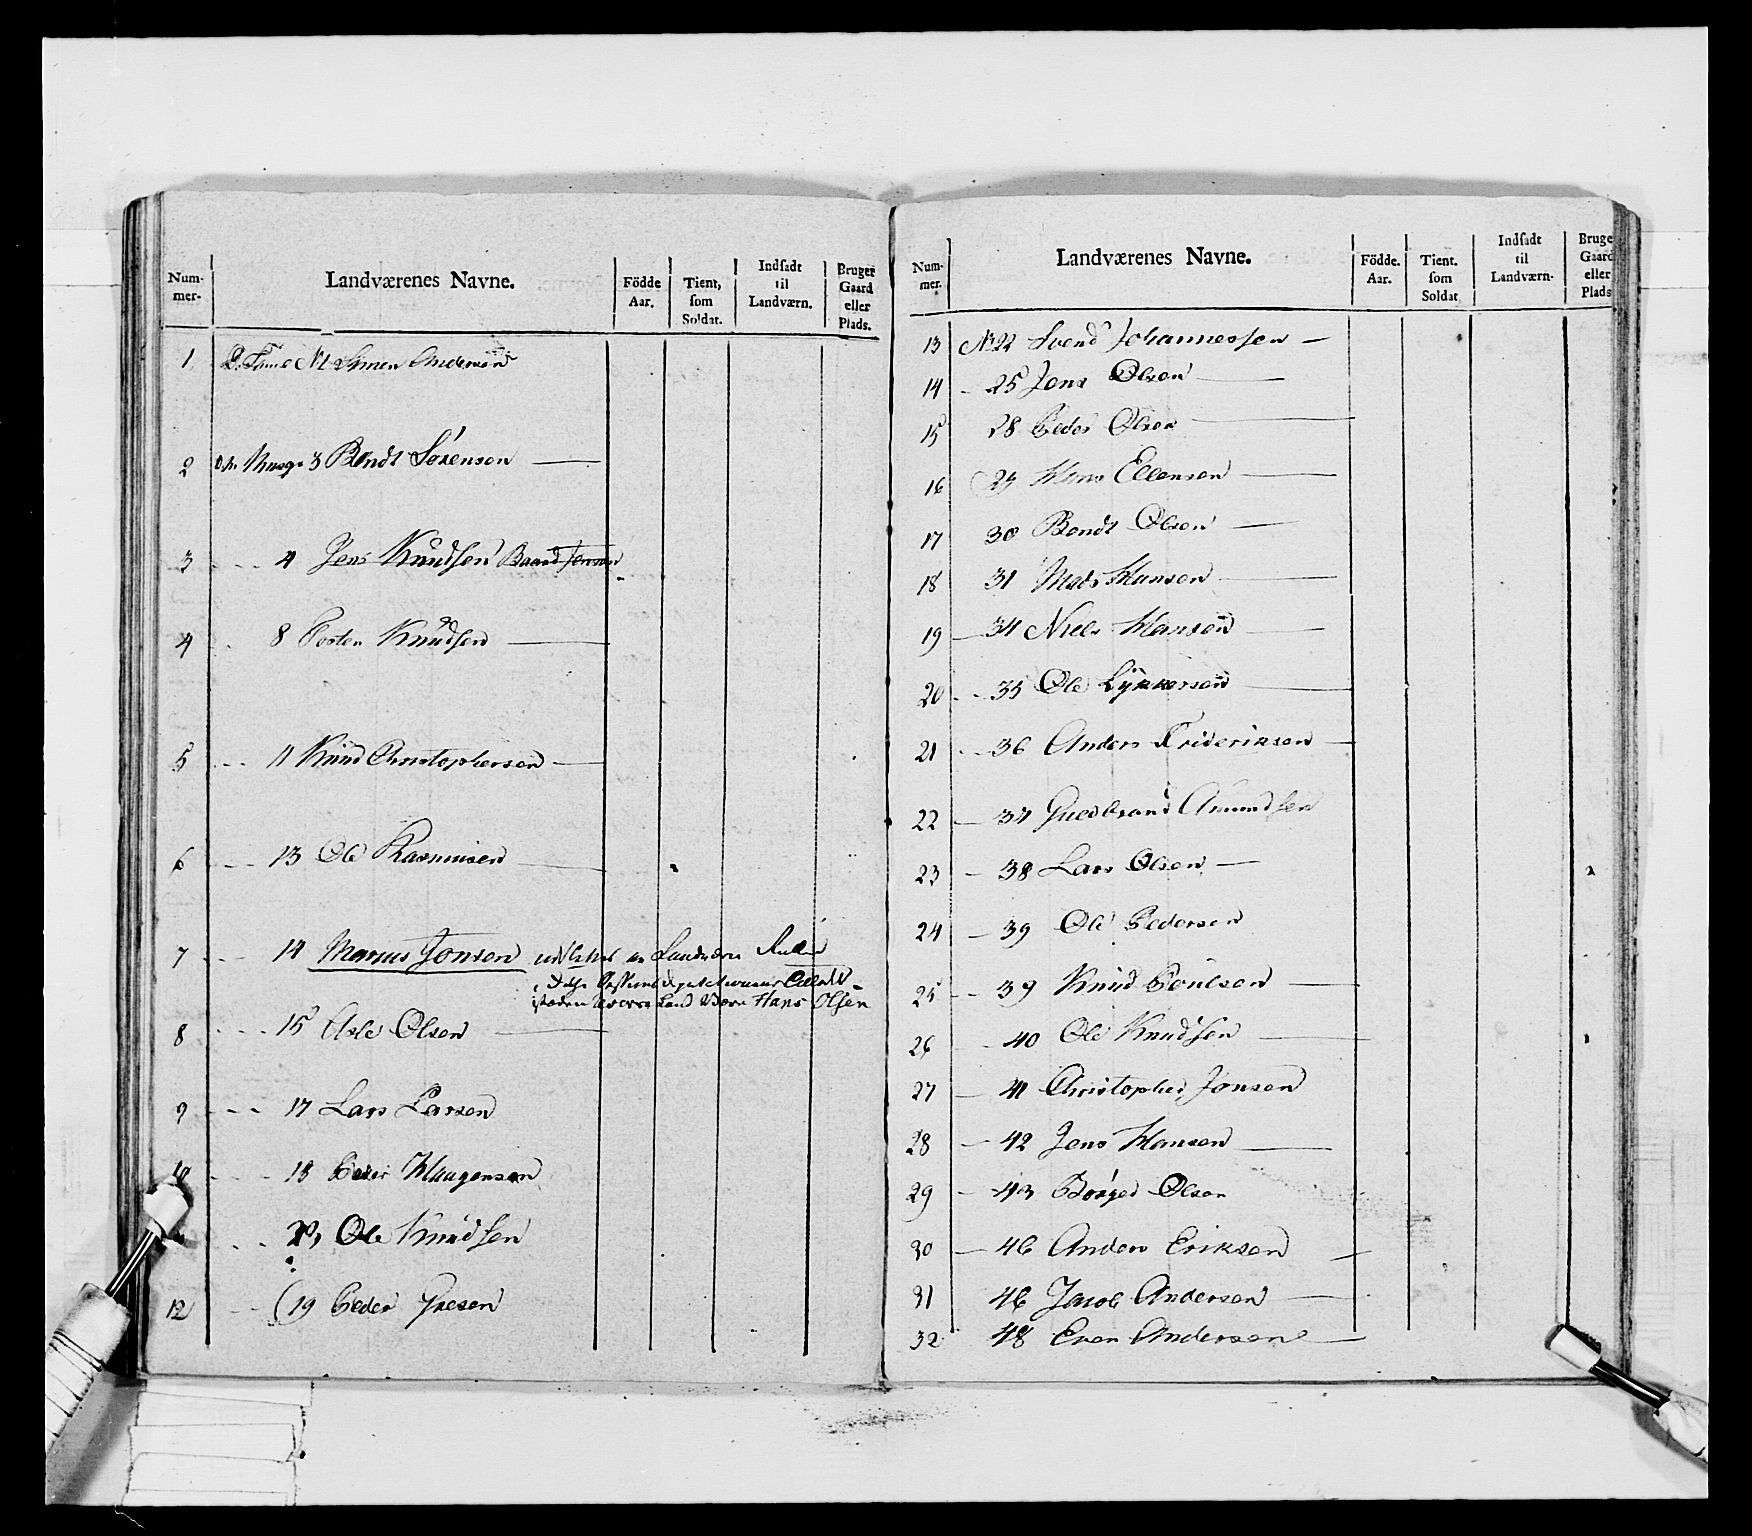 Num-
mer.
Landværenes Navne.
Födde
Aar.
Tient,
som
Soldat.
Indsadt
til
Landværn.
Bruger
Gaard
eller
Plads.
1 No 1 Simen Andersen
2 3 Bendt Sörensen
3 4 Jens Knudsen
4 8 Knudsen
5 11 Knud Christophersen
6 13 Ole Rasmusen
7 14 Jonsen
Hans Olsen
8 15 Olsen
9 17 Lars Larsen
10 18 Peder Haagensen
Ole Knudsen
12 19 Peder
Num-
mer.
Landværenes Navne.
Födde.
Aar.
Tient.
som
Soldat
Indsadt
til
Landværn-
Bruge
Gaard
eller
Plads
13 No 22 Svend Johannessen
14 25 Jens Olsen
15 28 Peder Olsen
16 29 Hans Ellensen
17 30 Bendt Olsen
18 31 Mads Hansen
19 34 Niels Hansen
20 35 Ole
21 36 Anders Frideriksen
22 37 Guldbrand Amundsen
23 38 Lars Olsen
24 39 Ole Pedersen
25 39 Knud Poulsen
26 40 Ole Knudsen
27 41 Christopher Jonsen
28 42 Jens Hansen
29 43 Börged Olsen
30 46 Anders Eriksen
31 46 Jacob Andersen
32 48 Even Andersen